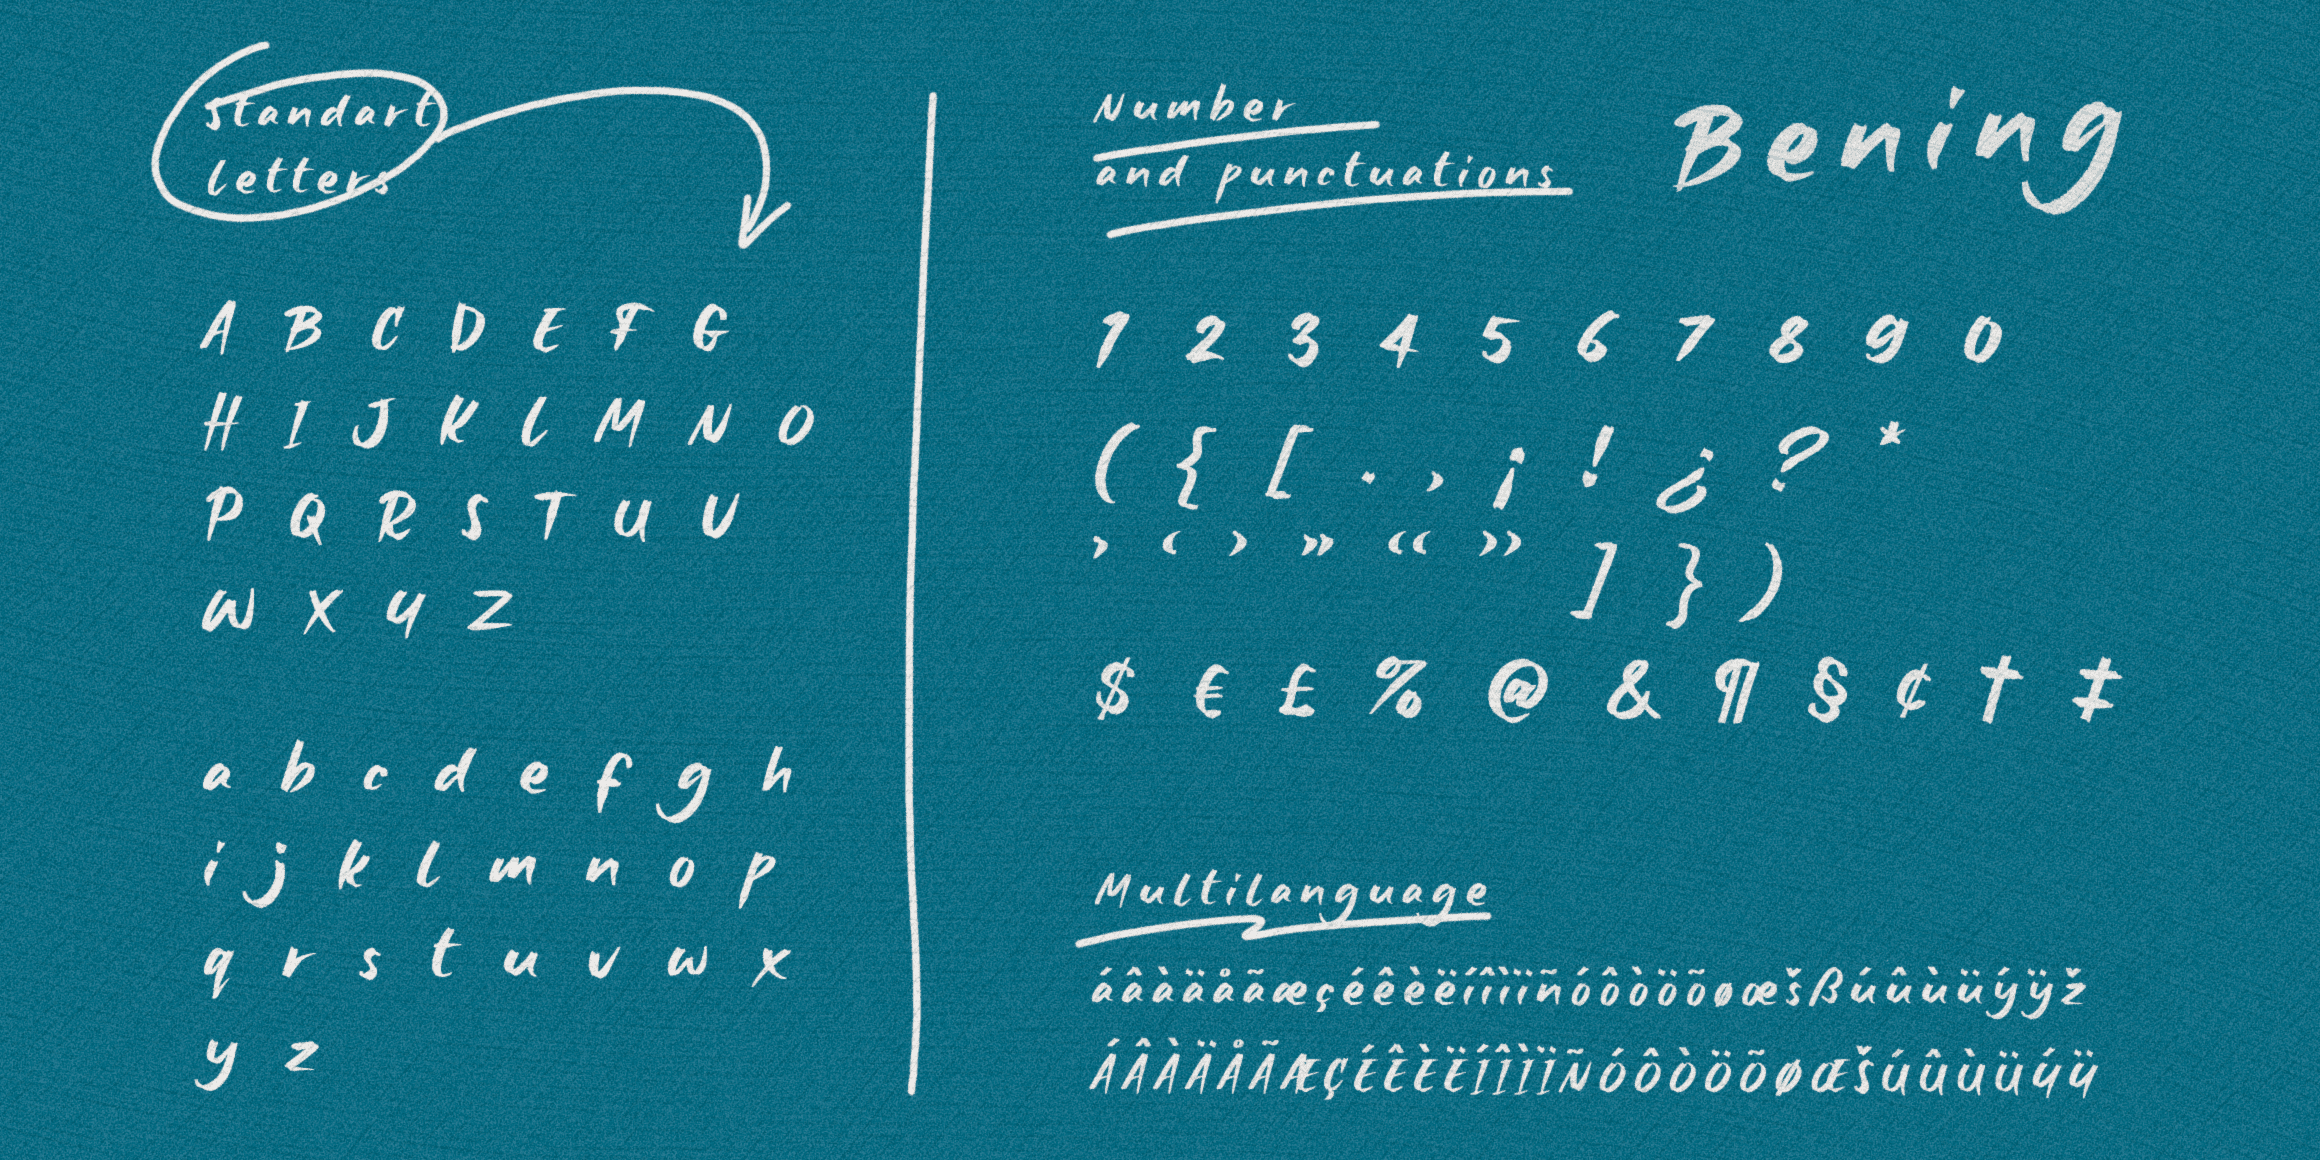 Standart
letters
A B C D E F G
H I J K L M N O
P Q R S T U V
W X Y Z
a b c d e f g h
i j k l m n o p
q r s t u v w x
y z
Number
and punctuations
Bening
1 2 3 4 5 6 7 8 9 0
( { [ . , ¡ ! ¿ ? *
' ‘ ’ " “ ” ] } )
$ € £ % @ & ¶ § ¢ † ‡
Multilanguage
áâàäåãæçéêèëíîìïñóôòöõøœšßúûùüýÿž
ÁÂÀÄÅÃÆÇÉÊÈËÍÎÌÏÑÓÔÒÖÕØŒŠÚÛÙÜÝŸ